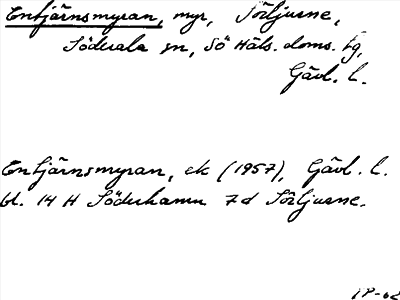 Entjärnsmyran, myr, Sörljusne,
Söderala sn, Sö Häls. doms. tg,
Gävl. l.
Entjärnsmyran, ek (1957), Gävl. l.
bl. 14 H Söderhamn 7d Sörljusne.